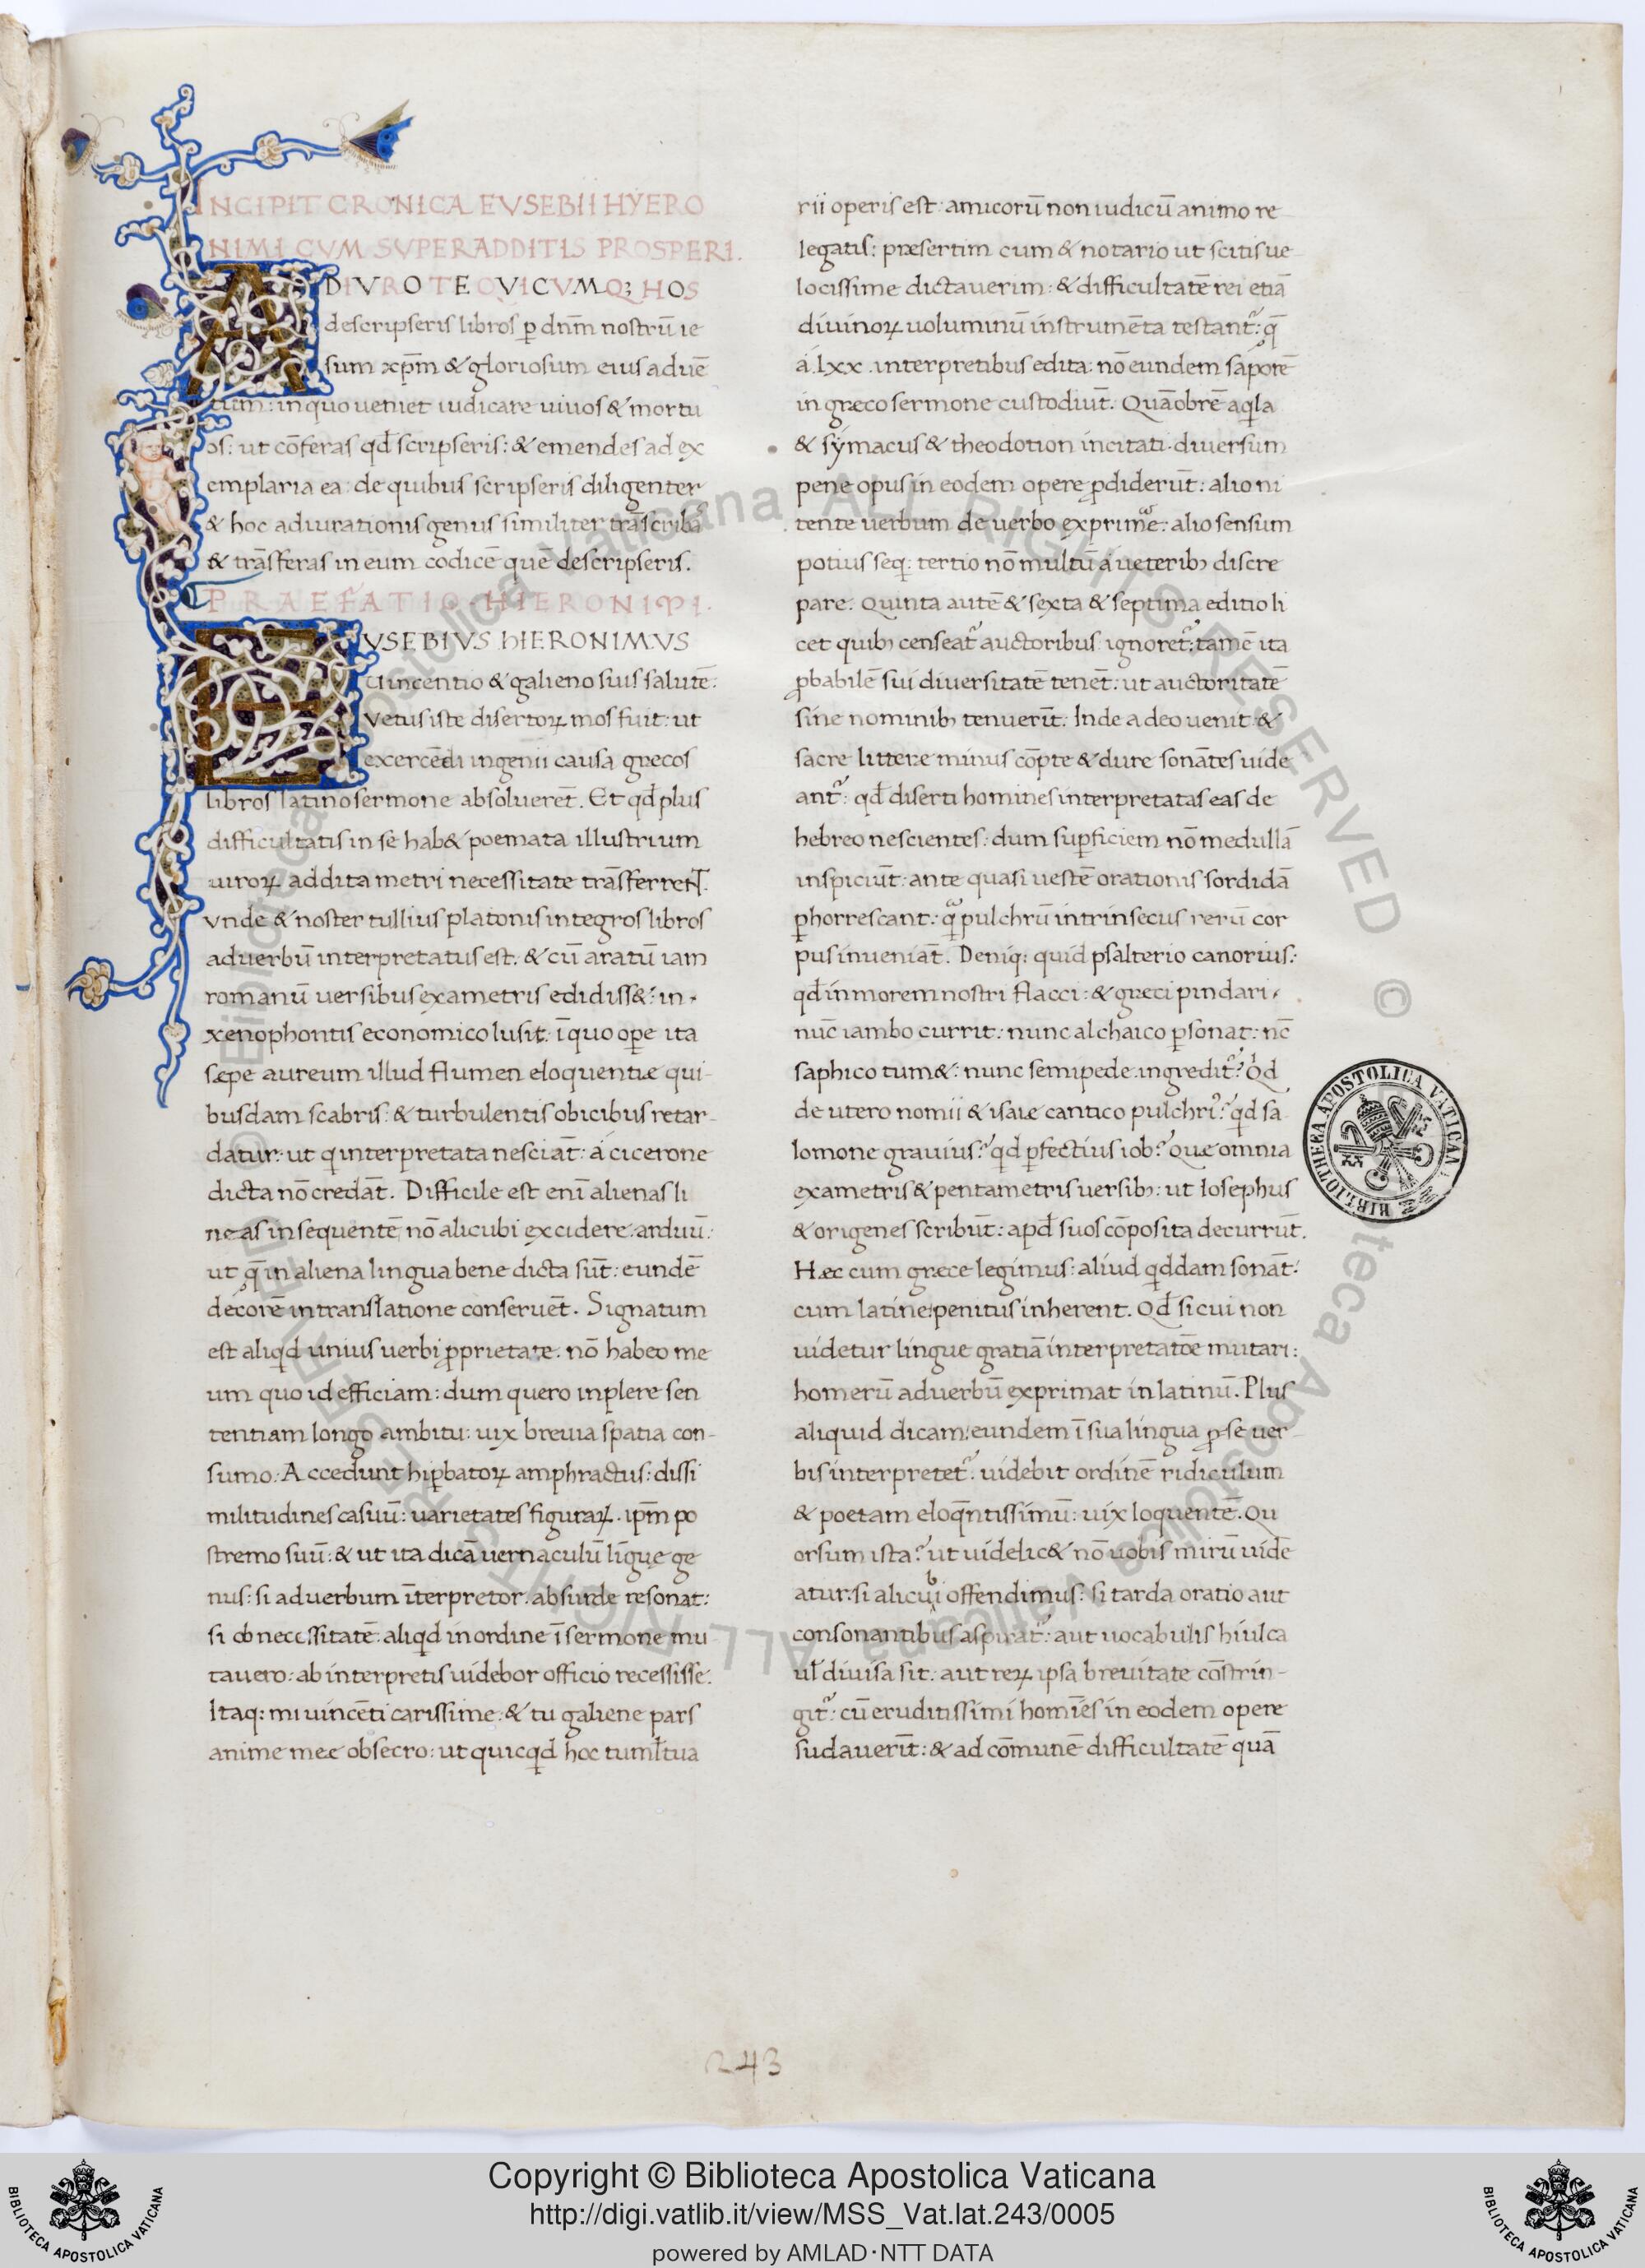 INCIPIT CRONICA EVSEBII HYERO
NIMI CVM SVPERADDITIS PROSPERI.
ADIVRO TE QVICVMQ; HOS
descripseris libros p̱ dnm̄ nostrū ie
sum xp̄m & gloriosum eius aduē
tum: in quo ueniet iudicare uiuos & mortu
os: ut cōferas qđ scripseris: & emendes ad ex
emplaria ea: de quibus scripseris diligenter
& hoc adiurationis genus similiter trāscribas
& trāsferas in eum codicē quē descripseris.
PRAEFATIO HIERONIMI.
EVSEBIVS HIERONIMVS
Vincentio & galieno suis salutē:
Vetus iste disertoꝝ mos fuit: ut
excercēdi ingenii causa grecos
libros latino sermone absoluerēt. Et qđ plus
difficultatis in se hab& poemata illustrium
uiroꝝ addita metri necessitate trāsferrent.
Vnde & noster tullius platonis integros libros
ad uerbū interpretatus est: & cū aratū iam
romanū uersibus exametris edidiss&: in
xenophontis economico lusit: ī quo oꝑe ita
sæpe aureum illud flumen eloquentiæ qui-
busdam scabris: & turbulentis obicibus retar-
datur: ut q interpretata nesciāt: á cicerone
dicta nō credāt. Difficile est enī alienas li
neas insequentē nō alicubi excidere: arduū:
ut q̄ in aliena lingua bene dicta sūt: eundē
decorē in translatione conseruēt. Signatum
est aliqd unius uerbi ꝓprietate: nō habeo me
um quo id efficiam: dum quero inplere sen
tentiam longo ambitu: uix breuia spatia con-
sumo: Accedunt hiꝑbatoꝝ amphractus: dissi
militudines casuū: uarietates figuraꝝ. ipm̄ po
stremo suū: & ut ita dicā uernaculū līgue ge
nus: si ad uerbum īterpretor: absurde resonat:
si ob necessitatē: aliqd in ordine ī sermone mu
tauero: ab interpretis uidebor officio recessisse:
Itaq: mi uincēti carissime: & tu galiene pars
anime mee obsecro: ut quicqd hoc tumłtua
rii operis est: amicorū non iudicū animo re
legatis: præsertim cum & notario ut scitis ue
locissime dictauerim: & difficultatē rei etiā
diuinoꝝ uoluminū instrumēta testant᷑: q̄
á .lxx. interpretibus edita: nō eundem saporē
in græco sermone custodiūt. Quāobrē aqla
& sýmacus & theodotion incitati. diuersum
pene opus in eodem opere ꝓdiderūt: alio ni
tente uerbum de uerbo exprimē: alio sensum
potius seq: tertio nō multū á ueterib; discre
pare: Quinta autē & sexta & septima editio li
cet quib; censeat᷑ auctoribus ignoret᷑: tamē ita
ꝓbabilē sui diuersitatē tenēt: ut auctoritatē
sine nominib; tenuerīt. Inde adeo uenit &
sacre litteræ minus cōpte & dure sonātes uide
ant᷑: qđ diserti homines interpretatas eas de
hebreo nescientes: dum suꝑficiem nō medullā
inspiciūt: ante quasi uestē orationis sordidā
ꝑhorrescant: q̄ pulchrū intrinsecus rerū cor
pus inueniāt. Deniq: quid psalterio canorius:
qđ in morem nostri flacci: & græci pindari,
nūc iambo currit: nunc alchaico ꝑsonat: nc̄
saphico tum&: nunc semipede ingredit᷑? Qđ
deutero nomii & isaiæ cantico pulchri᷑? qđ sa
lomone grauius? qđ ꝑfectius iob? Que omnia
exametris & pentametris uersib;: ut Iosephus
& origenes scribūt: apđ suos cōposita decurrūt.
Hæc cum græce legimus: aliud qddam sonāt:
cum latine: penitus inherent. Qđ si cui non
uidetur lingue gratiā interpretatōe mutari:
homerū ad uerbū exprimat in latinū. Plus
aliquid dicam: eundem ī sua lingua ꝓse uer-
bis interpretet᷑: uidebit ordinē ridiculum
& poetam eloqntissimū: uix loquentē. Qu
orsum ista? ut uidelic& nō uobis mirū uide
atur: si alicubi offendimus: si tarda oratio aut
consonantibus aspirat᷑: aut uocabulis hiulca
uł diuisa sit: aut reꝝ ipsa breuitate cōstrin-
git᷑: cū eruditissimi homīes in eodem opere
sudauerīt: & ad cōmunē difficultatē quā
BIBLIOTHECA APOSTOLICA VATICANA
243
© Biblioteca Apostolica Vaticana ALL RIGHTS RESERVED
© Biblioteca Apostolica Vaticana ALL RIGHTS RESERVED
Copyright © Biblioteca Apostolica Vaticana
http://digi.vatlib.it/view/MSS_Vat.lat.243/0005
powered by AMLAD·NTT DATA
BIBLIOTECA APOSTOLICA VATICANA
BIBLIOTECA APOSTOLICA VATICANA